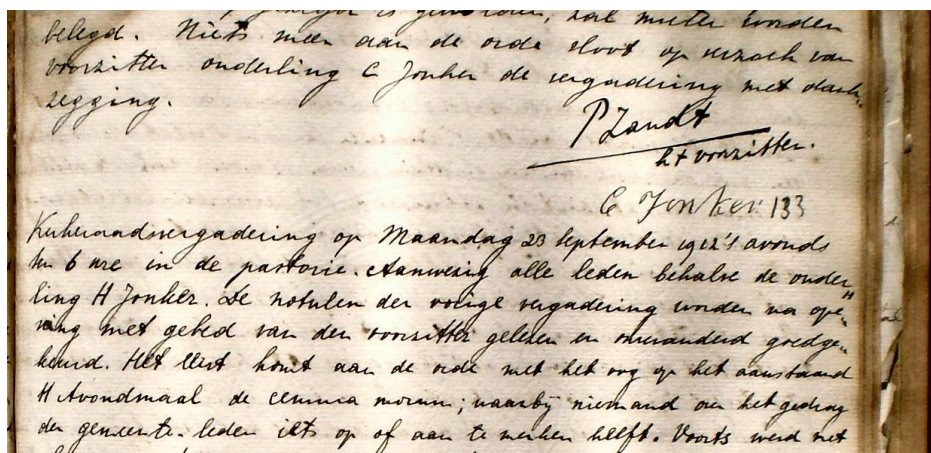 is geworden, zal moeten worden
belegd. Niets meer aan de orde sloot op verzoek van
voorzitter onderling C Jonker de vergadering met dank-
zegging.
P Zandt
h t voorzitter.
C Jonker 133
Kerkeraadsvergadering op Maandag 23 September 1912 's avonds
ten 6 ure in de pastorie. Aanwezig alle leden behalve de ouder„
ling H Jonker. De notulen der vorige vergadering worden na ope„
ning met gebed van den voorzitter gelezen en onveranderd goedge„
keurd. Het eerst komt aan de orde met het oog op het aanstaand
H Avondmaal de censura morum; waarbij niemand over het gedrag
der gemeente-leden iets op of aan te merken heeft. Voorts werd met